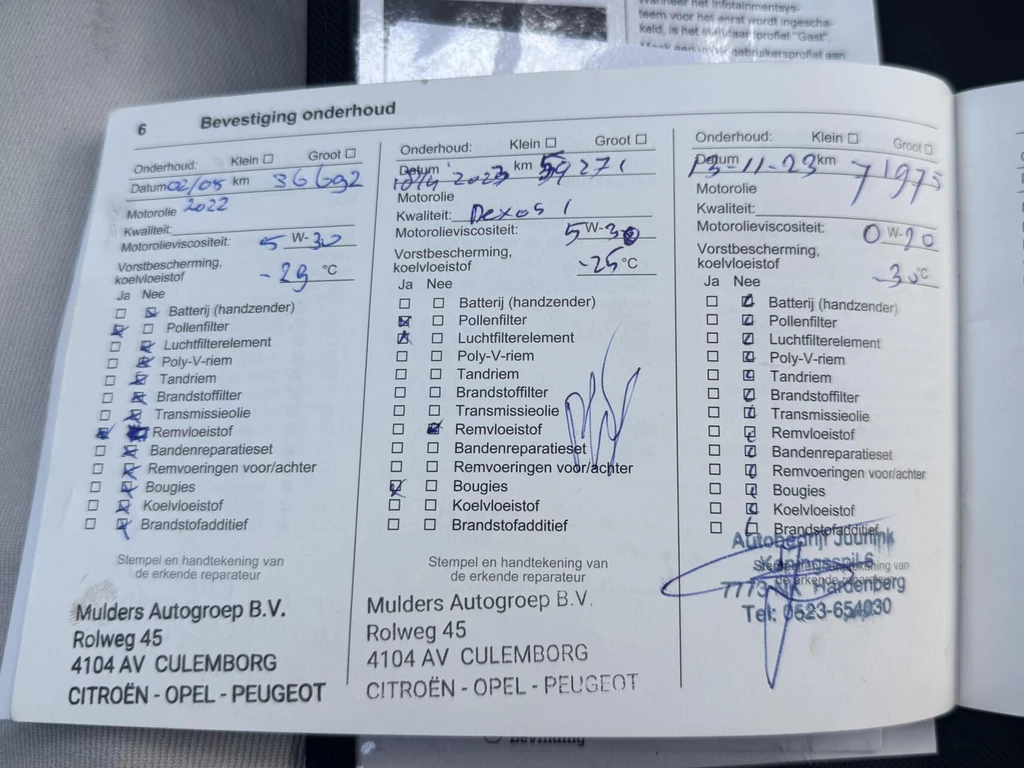 Wanneer het Infotainmentsys-
teem voor het eerst wordt ingescha-
keld, is het standaardprofiel "Gast".
gebruikersprofiel aan
6 Bevestiging onderhoud
Onderhoud: Klein Groot
Datum 02/05 km 36692
2022
Motorolie
Kwaliteit:
Motorolieviscositeit: 5 W-30
Vorstbescherming,
koelvloeistof -29 °C
Ja Nee
Batterij (handzender)
Pollenfilter
Luchtfilterelement
Poly-V-riem
Tandriem
Brandstoffilter
Transmissieolie
Remvloeistof
Bandenreparatieset
Remvoeringen voor/achter
Bougies
Koelvloeistof
Brandstofadditief
Stempel en handtekening van
de erkende reparateur
Mulders Autogroep B.V.
Rolweg 45
4104 AV CULEMBORG
CITROËN - OPEL - PEUGEOT
Onderhoud: Klein Groot
Datum 2023 km 59271
Motorolie
Kwaliteit: Dexos 1
Motorolieviscositeit: 5 W-30
Vorstbescherming,
koelvloeistof -25 °C
Ja Nee
Batterij (handzender)
Pollenfilter
Luchtfilterelement
Poly-V-riem
Tandriem
Brandstoffilter
Transmissieolie
Remvloeistof
Bandenreparatieset
Remvoeringen voor/achter
Bougies
Koelvloeistof
Brandstofadditief
Stempel en handtekening van
de erkende reparateur
Mulders Autogroep B.V.
Rolweg 45
4104 AV CULEMBORG
CITROËN - OPEL - PEUGEOT
Onderhoud: Klein Groot
Datum 13-11-23 km 71975
Motorolie
Kwaliteit:
Motorolieviscositeit: 0 W-20
Vorstbescherming,
koelvloeistof -30 °C
Ja Nee
Batterij (handzender)
Pollenfilter
Luchtfilterelement
Poly-V-riem
Tandriem
Brandstoffilter
Transmissieolie
Remvloeistof
Bandenreparatieset
Remvoeringen voor/achter
Bougies
Koelvloeistof
Brandstofadditief
Stempel en handtekening van
de erkende reparateur
Autobedrijf Juurlink
7773 NK Hardenberg
Tel: 0523-654030